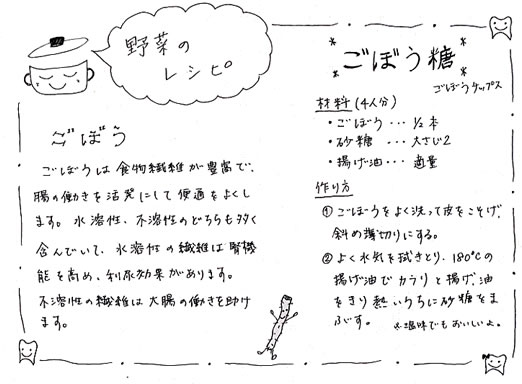 野菜の
レシピ
ごぼう
ごぼうは食物繊維が豊富で、
腸の働きを活発にして便通をよくし
ます。水溶性、不溶性のどちらも多く
含んでいて、水溶性の繊維は腎機
能を高め、利尿効果があります。
不溶性の繊維は大腸の働きを助け
ます。
ごぼう糖
ごぼうチップス
材料(4人分)
・ごぼう・・・½本
・砂糖・・・大さじ2
・揚げ油・・・適量
作り方
①ごぼうをよく洗って皮をこそげ、
斜め薄切りにする。
②よく水気を拭きとり、180℃の
揚げ油でカラリと揚げ、油
をきり熱いうちに砂糖をま
ぶす。
※塩味でもおいしいよ。